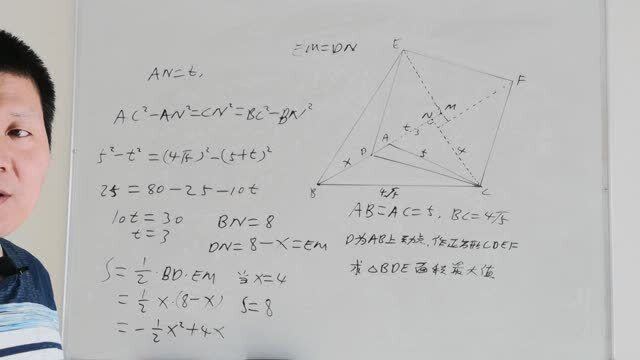 AN=t,
AC²-AN²=CN²=BC²-BN²
5²-t²=(4√5)²-(5+t)²
25=80-25-10t
10t=30
t=3
BN=8
DN=8-x=EM
S=1/2·BD·EM
当x=4
=1/2 x·(8-x)
S=8
=-1/2x²+4x
EM=DN
E
F
M
N
A
t
3
5
4
D
x
B
4√5
C
AB=AC=5, BC=4√5
D为AB上动点,作正方形CDEF
求△BDE面积最大值